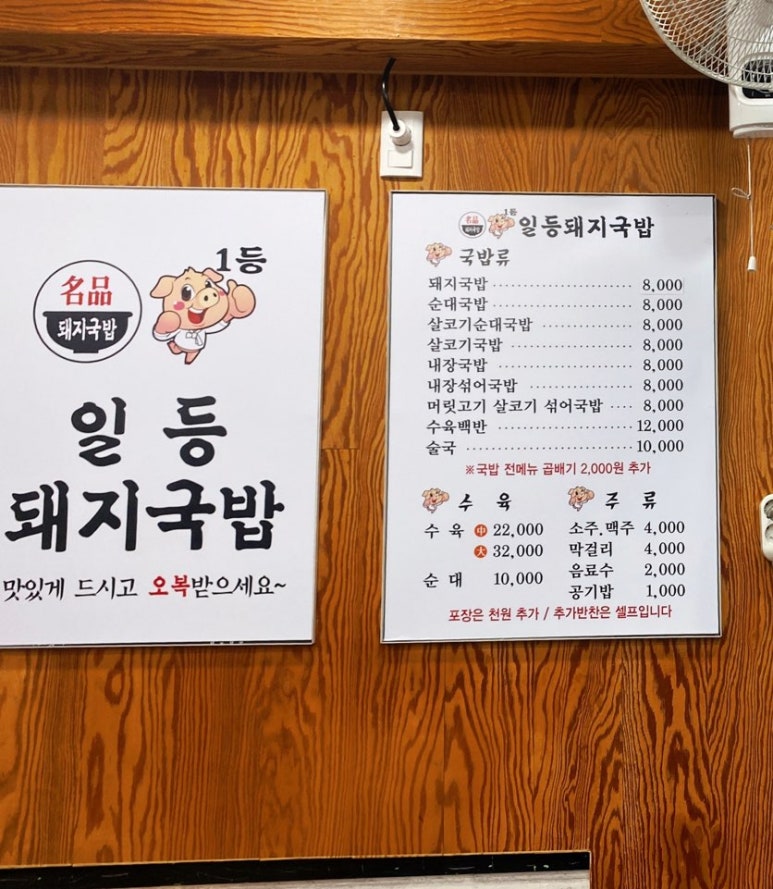 名品
돼지국밥
1등
일등
돼지국밥
맛있게 드시고 오복받으세요~
名品
돼지국밥
1등
일등돼지국밥
국밥류
돼지국밥 8,000
순대국밥 8,000
살코기순대국밥 8,000
살코기국밥 8,000
내장국밥 8,000
내장섞어국밥 8,000
머릿고기 살코기 섞어국밥 8,000
수육백반 12,000
술국 10,000
※국밥 전메뉴 곱배기 2,000원 추가
수육
수육 中 22,000
大 32,000
순대 10,000
주류
소주.맥주 4,000
막걸리 4,000
음료수 2,000
공기밥 1,000
포장은 천원 추가 / 추가반찬은 셀프입니다